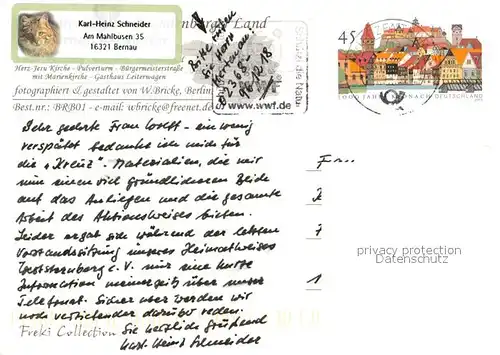 Karl-Heinz Schneider
Am Mahlbusen 35
16321 Bernau
Land
Herz-Jesu Kirche - Pulverturm - Bürgermeisterstraße
mit Marienkirche - Gasthaus Leiterwagen
fotografiert & gestaltet von W.Bricke, Berlin
Best.nr.: BRB01 - e-mail: wbricke@freenet.de
Bitte
www.wwf.de
45
1000 JAHRE KRONACH DEUTSCHLAND
Sehr geehrte Frau Wolff - ein wenig
verspätet bedanke ich mich für
die "Kreuz"- Materialien, die mir
nun einen viel gründlicheren
auf das Anliegen und die gesamte
Arbeit des Aktionskreises bieten.
Leider ergab sich während der letzten
Vorstandssitzung unseres Heimatkreises
Oststernberg e.V. nur eine kurze
Information meinerseits über unser
Telefonat. Sicher aber werden wir
noch verstehender darüber reden.
Sie herzlich grüßend
Freki Collection
Karl-Heinz Schneider
F
1
privacy protection
Datenschutz